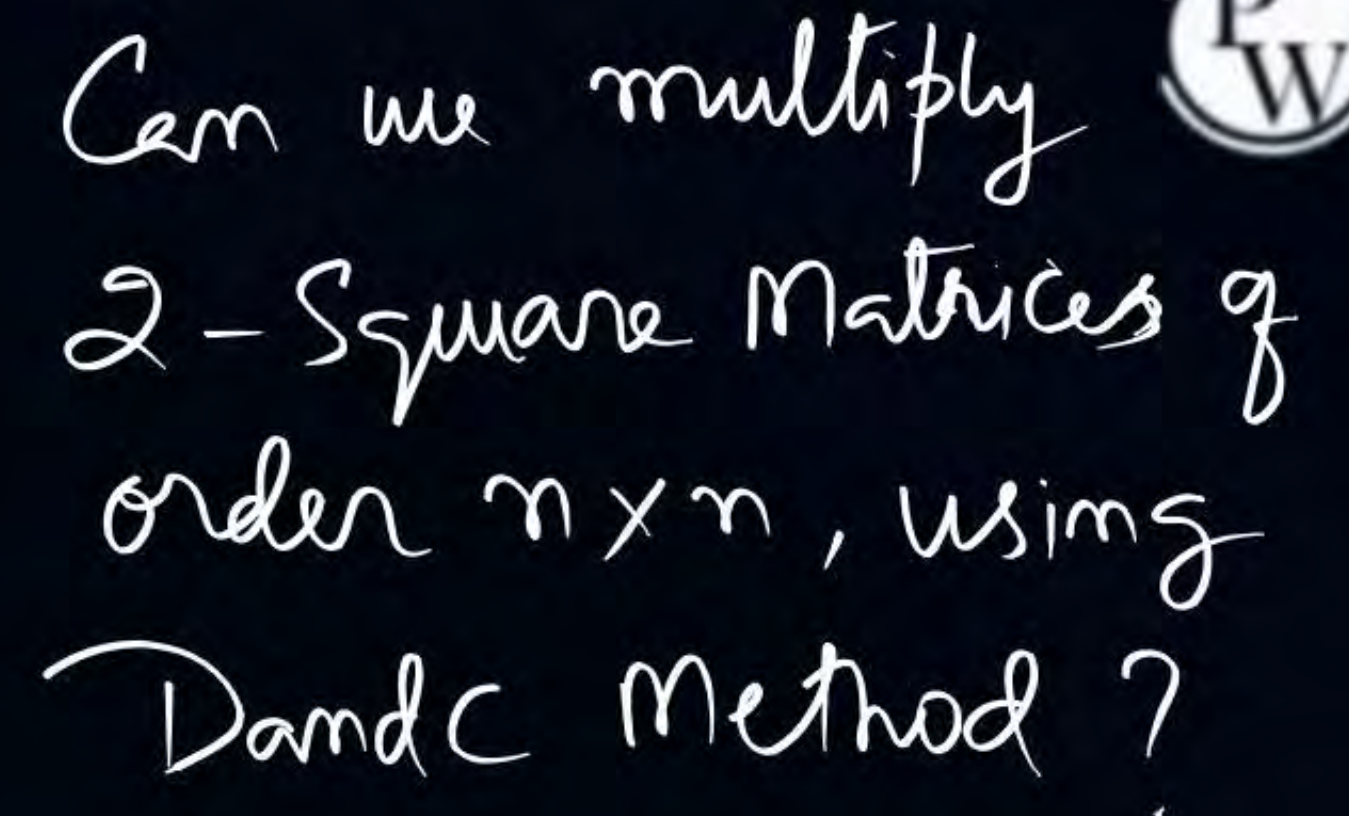 P
W
Can we multiply
2-Square Matrices of
order n×n, using
DandC Method ?